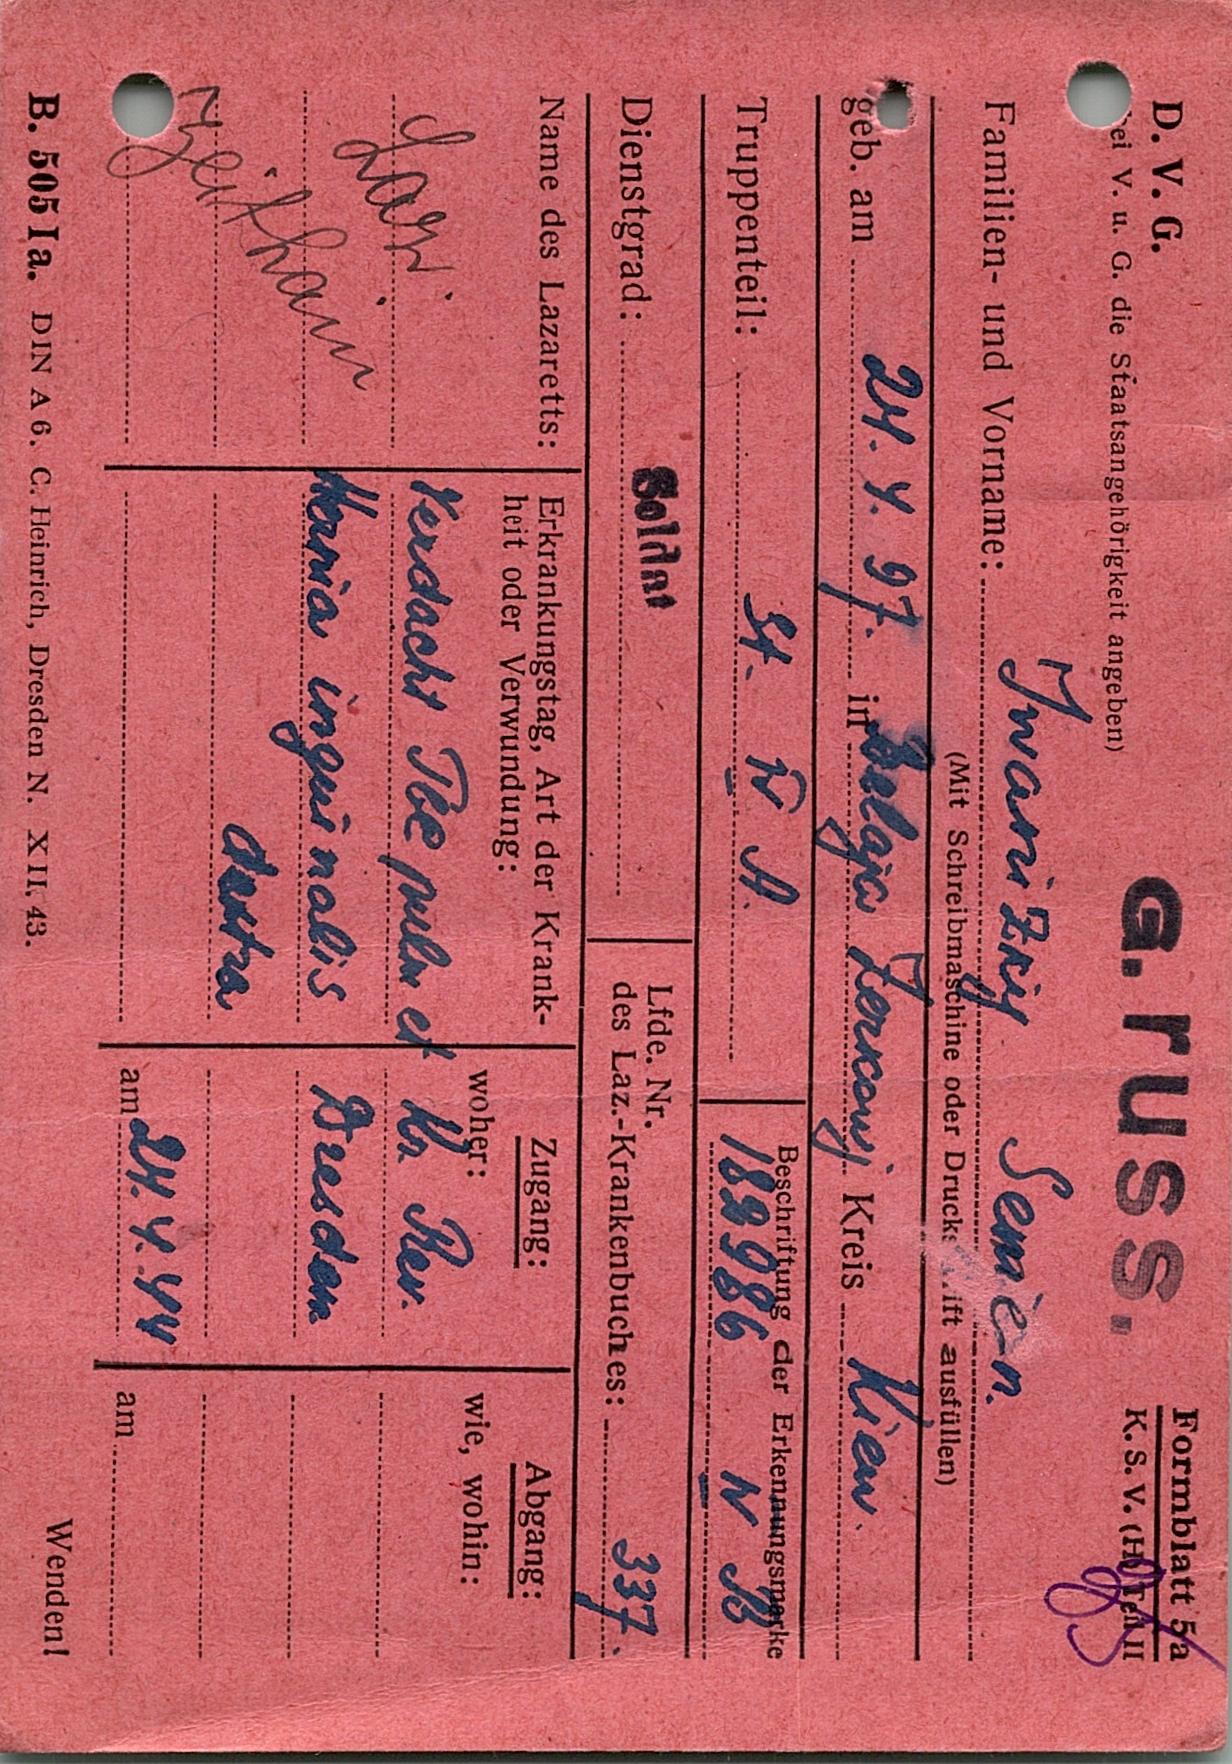 D. V. G.
G. russ.
Formblatt 5a
K. S. V. (H) Teil II
bei V. u. G. die Staatsangehörigkeit angeben)
Familien- und Vorname: Semen.
(Mit Schreibmaschine oder Druckschrift ausfüllen)
geb. am 24. 4. 97. in Belaja Zerkowj Kreis Kiew.
Truppenteil: St. IV A.
Beschriftung der Erkennungsmarke
182986 IV B
Dienstgrad: Soldat
Lfde. Nr.
des Laz.-Krankenbuches: 337.
Name des Lazaretts:
Laz.
Zeithain
Erkrankungstag, Art der Krank-
heit oder Verwundung:
Verdacht Tbc pulm et
Hernia inguinalis
dextra
Zugang:
woher: Rev.
Dresden
am 24. 4. 44
Abgang:
wie, wohin:
am
B. 505 Ia. DIN A 6. C. Heinrich, Dresden N. XII. 43.
Wenden!